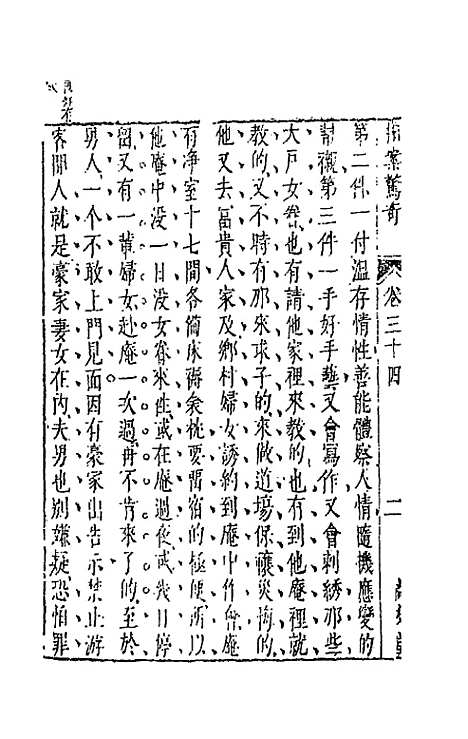 拍案驚奇　卷三十四　二　尚友堂
第二件一付溫存情性善能體察人情隨機應變的
幫襯第三件一手好手藝又會寫作又會刺綉那些
大戶女眷也有請他家裡來教的也有到他庵裡就
教的又不時有那來求子的來做道場保禳災悔的
他又去富貴人家及鄉村婦女誘約到庵中作會庵
有净室十七間各備床褥衾枕要留宿的極便所以
他庵中没一日没女眷來往或在庵過夜或幾日停
留又有一輩婦女赴庵一次過再不肯來了的至於
男人一个不敢上門見面因有豪家出告示禁止游
客閒人就是豪家妻女在內夫男也别嫌疑恐怕罪